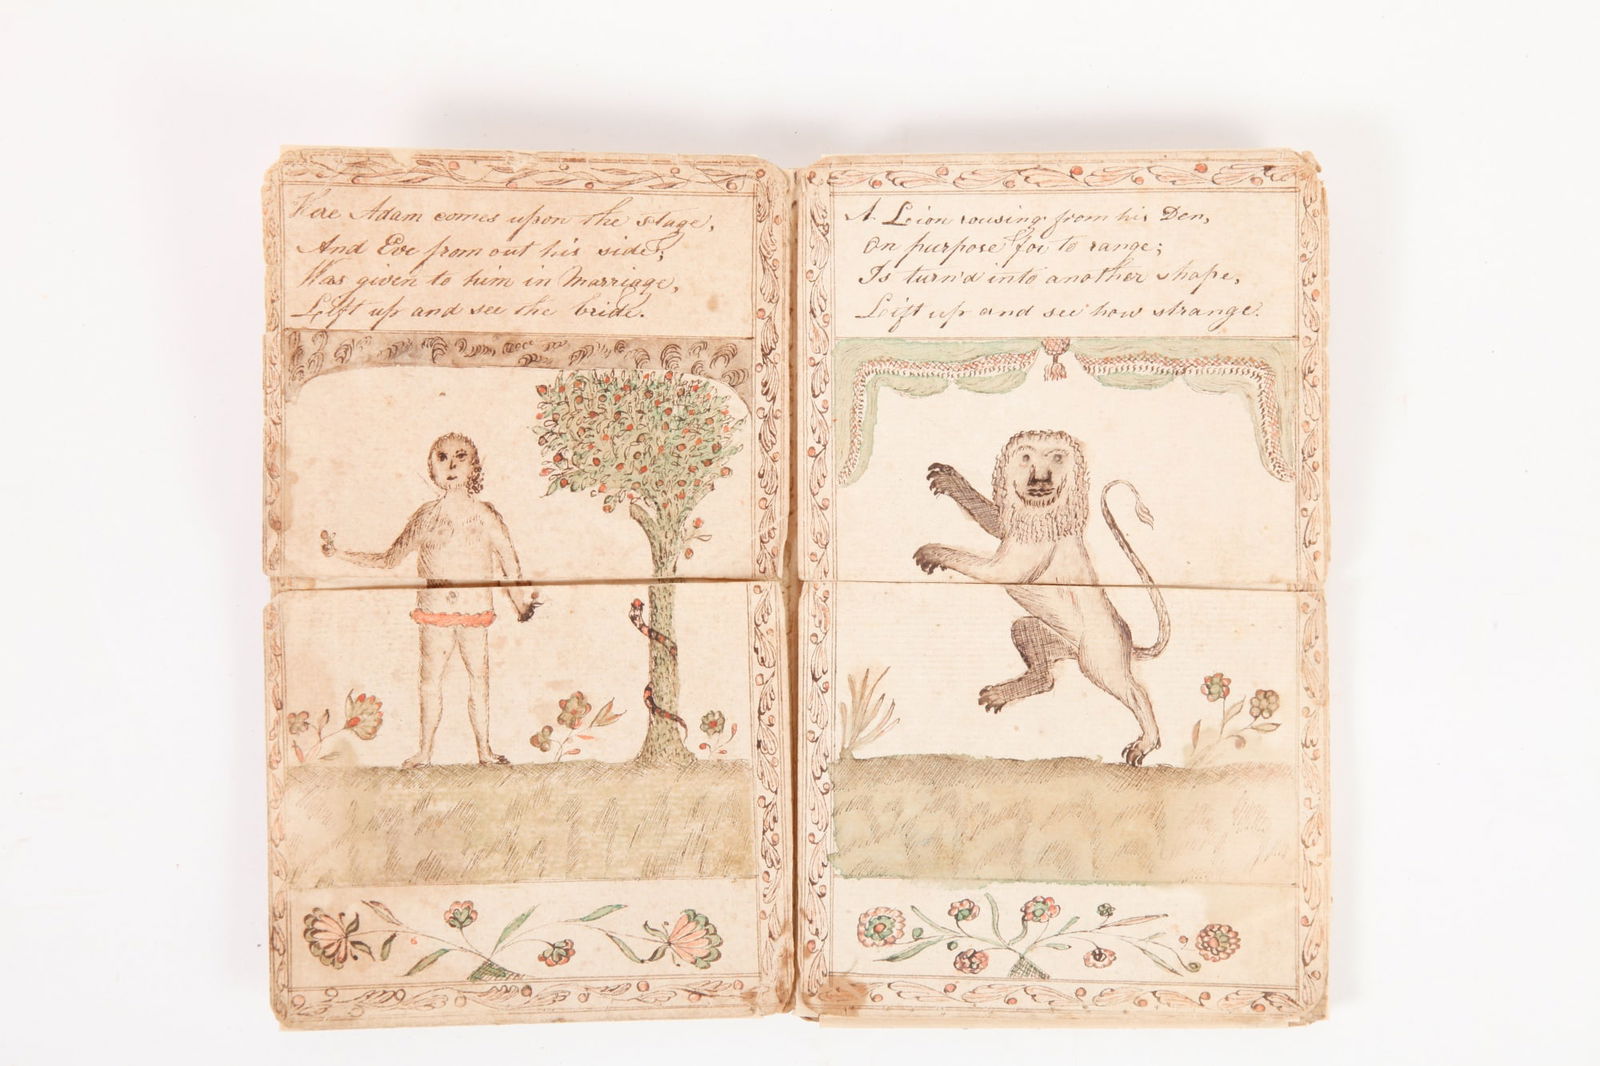 Here Adam comes upon the stage,
And Eve from out his side,
Was given to him in Marriage,
Lift up and see the bride.
A Lion rousing from his Den,
On purpose for to range;
Is turn'd into another shape,
Lift up and see how strange.